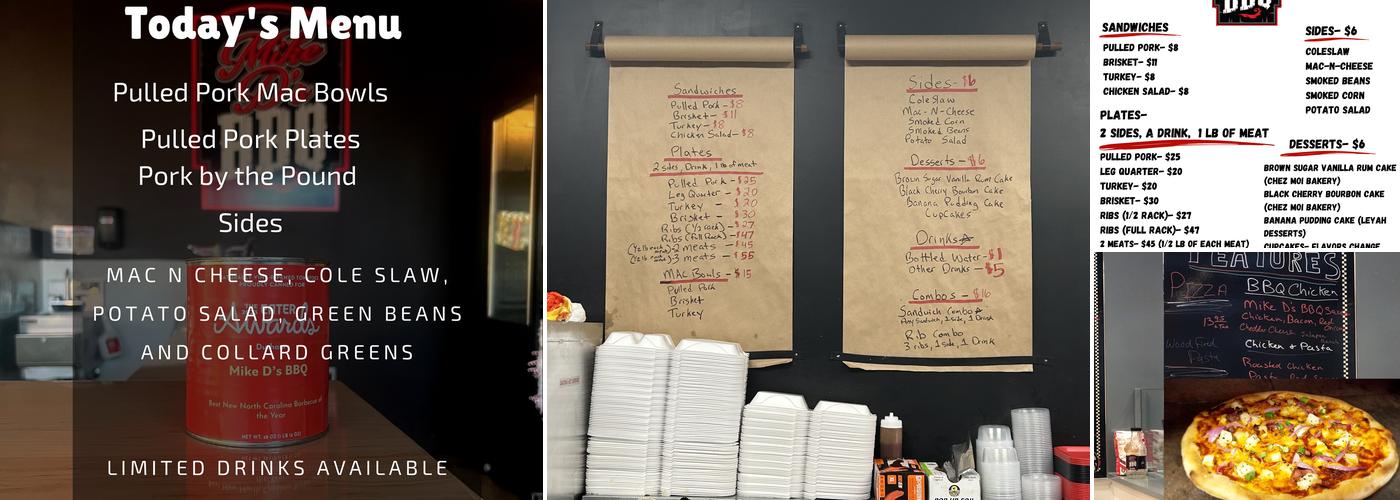 Today's Menu
Mike
D's
BBQ
Pulled Pork Mac Bowls
Pulled Pork Plates
Pork by the Pound
Sides
MAC N CHEESE, COLE SLAW,
POTATO SALAD, GREEN BEANS
AND COLLARD GREENS
PROUDLY CANNED FOR
Awards
Mike D's BBQ
Best New North Carolina Barbecue of
the Year
LIMITED DRINKS AVAILABLE
Sandwiches
Pulled Pork - $8
Brisket - $11
Turkey - $8
Chicken Salad - $8
Plates
2 sides, Drink, 1 lb of meat
Pulled Pork - $25
Leg Quarter - $20
Turkey - $20
Brisket - $30
Ribs (1/2 rack) - $27
Ribs (full Rack) - $47
2 meats - $45
3 meats - $55
MAC Bowls - $15
Pulled Pork
Brisket
Turkey
Sides - $6
Coleslaw
Mac-N-Cheese
Smoked Corn
Smoked Beans
Potato Salad
Desserts - $6
Brown Sugar Vanilla Rum Cake
Black Cherry Bourbon Cake
Banana Pudding Cake
Cupcakes
Drinks
Bottled Water - $1
Other Drinks - $5
Combos - $16
Sandwich Combo
Any Sandwich, 1 side, 1 Drink
Rib Combo
3 ribs, 1 side, 1 Drink
BBQ
SANDWICHES
PULLED PORK- $8
BRISKET- $11
TURKEY- $8
CHICKEN SALAD- $8
PLATES-
2 SIDES, A DRINK, 1 LB OF MEAT
PULLED PORK- $25
LEG QUARTER- $20
TURKEY- $20
BRISKET- $30
RIBS (1/2 RACK)- $27
RIBS (FULL RACK)- $47
2 MEATS- $45 (1/2 LB OF EACH MEAT)
SIDES- $6
COLESLAW
MAC-N-CHEESE
SMOKED BEANS
SMOKED CORN
POTATO SALAD
DESSERTS- $6
BROWN SUGAR VANILLA RUM CAKE
(CHEZ MOI BAKERY)
BLACK CHERRY BOURBON CAKE
(CHEZ MOI BAKERY)
BANANA PUDDING CAKE (LEYAH
DESSERTS)
CUPCAKES- FLAVORS CHANGE
FEATURES
Pizza
BBQ Chicken
Mike D's BBQ Sauce
Chicken, Bacon, Red
Cheddar Cheese
Wood Fired
Pasta
Chicken & Pasta
Roasted Chicken